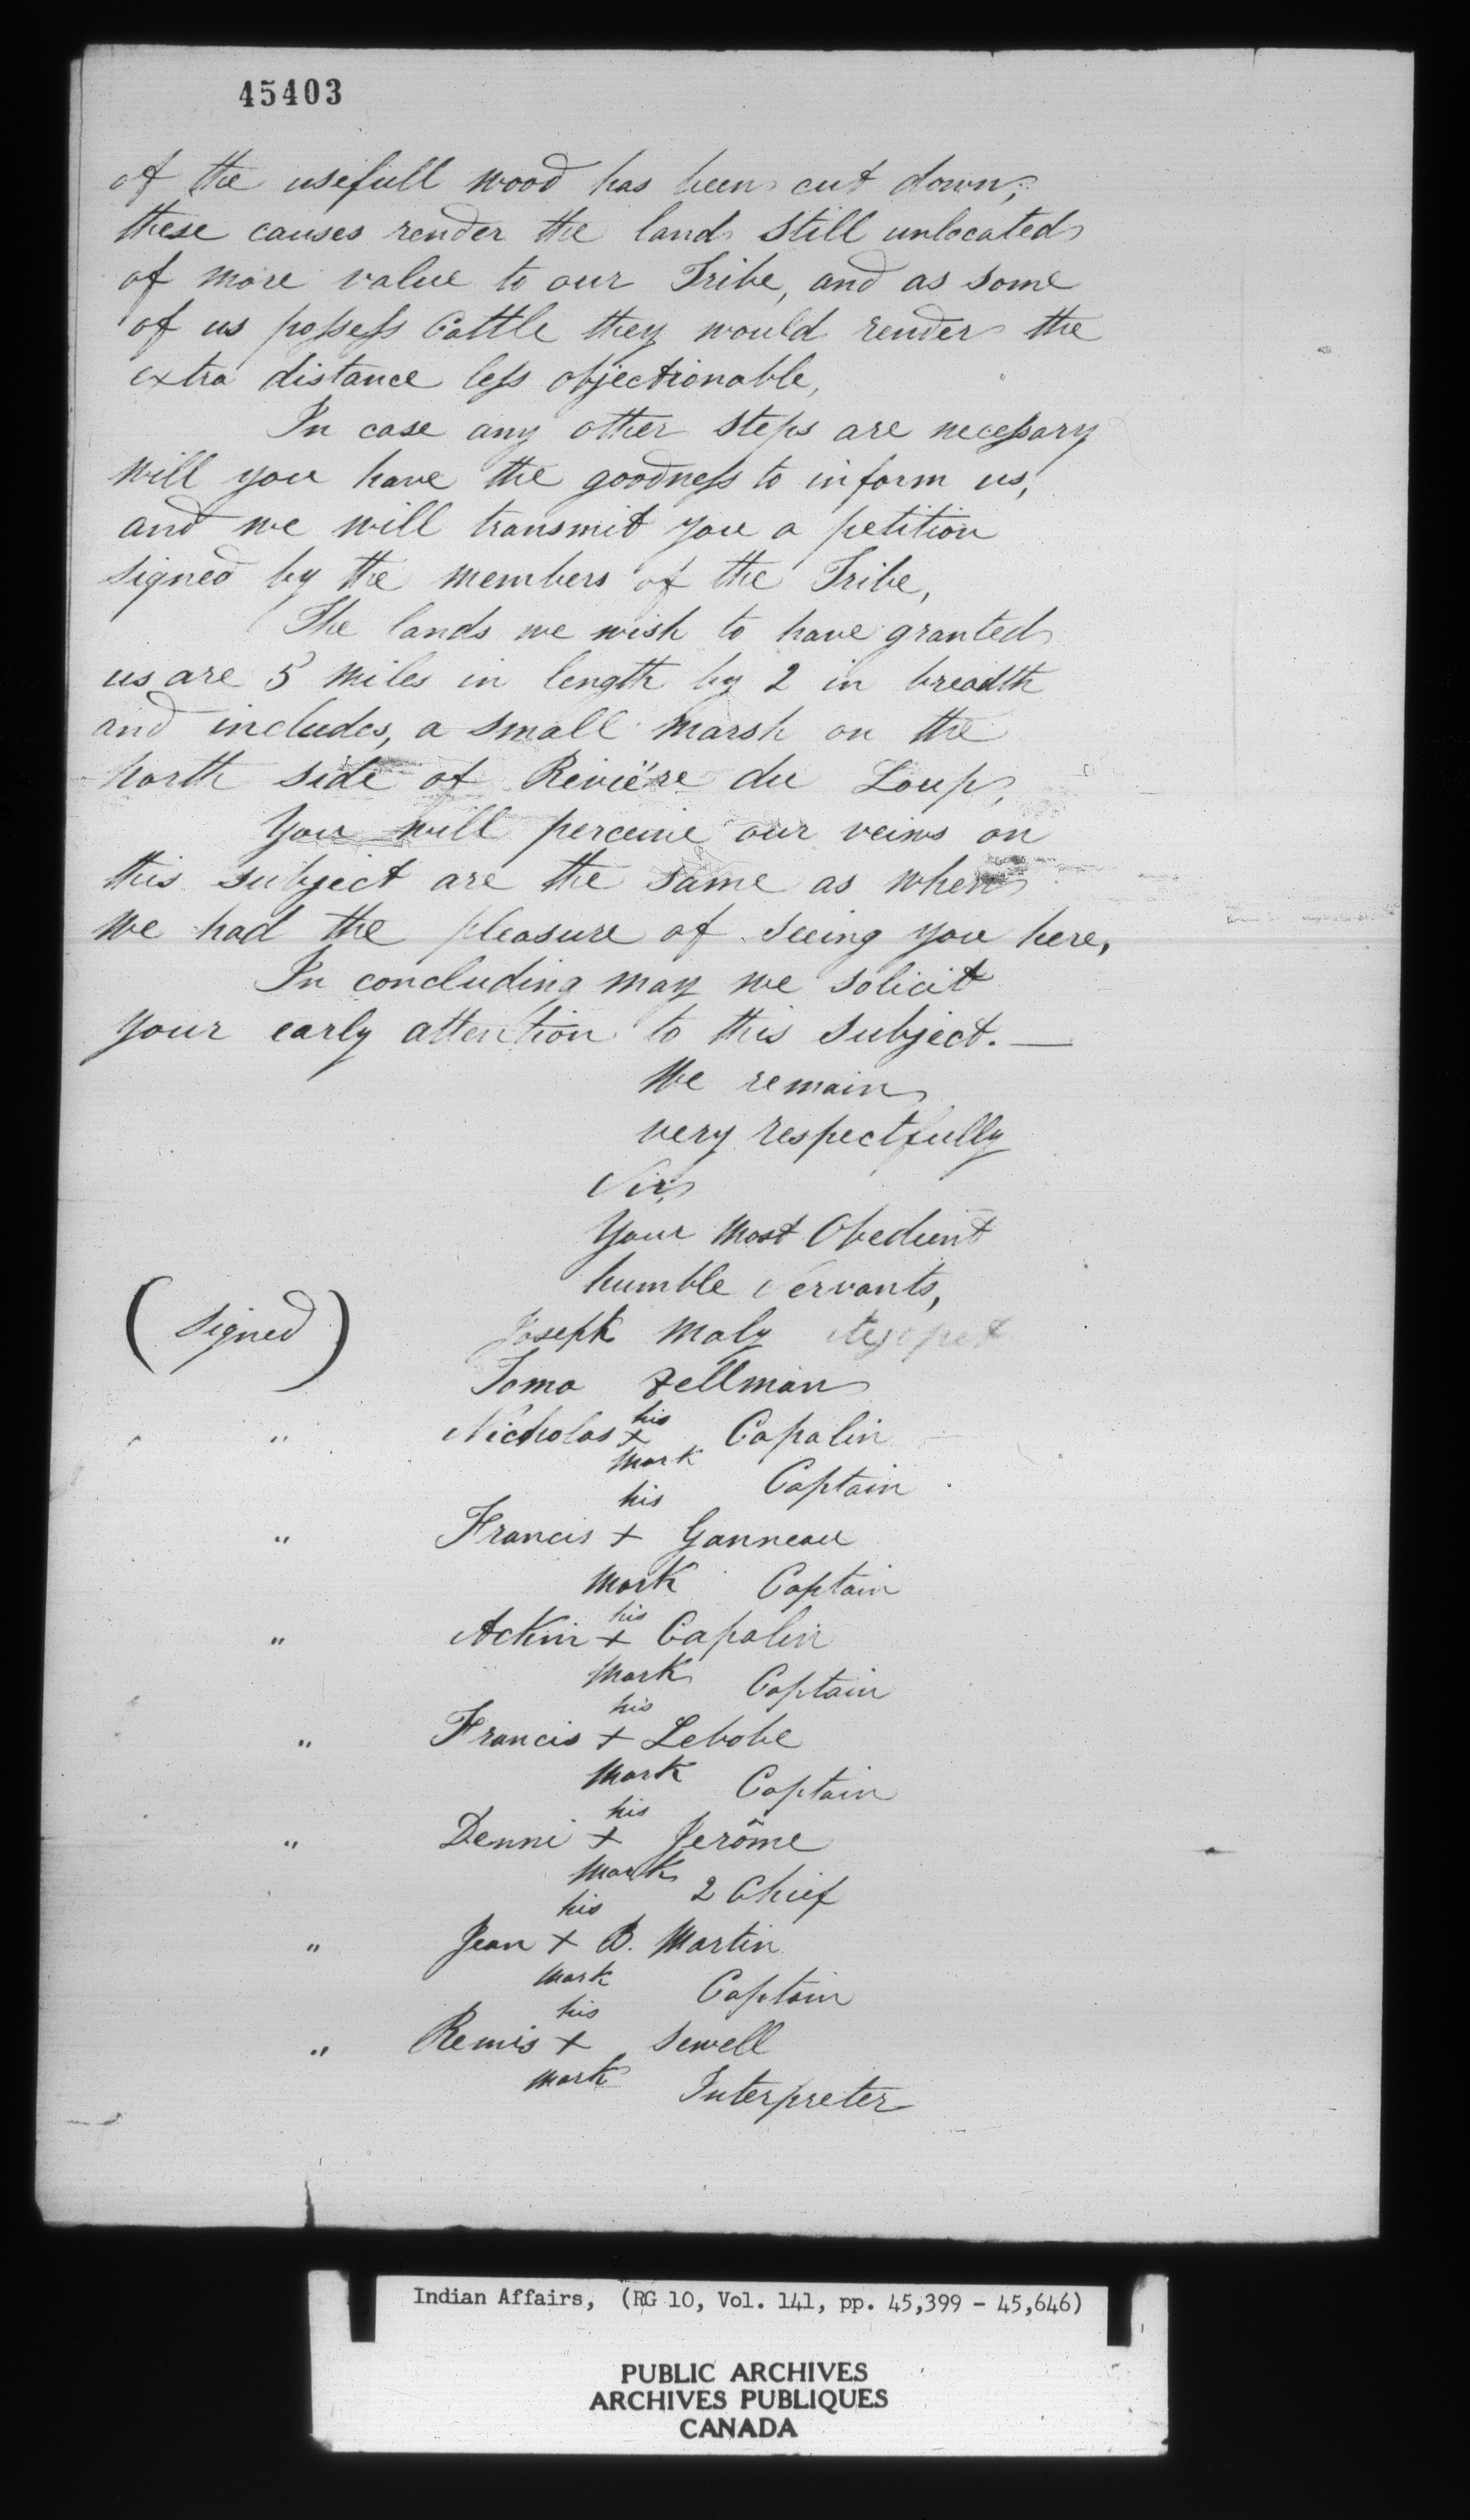 45403
of the usefull wood has been cut down;
these causes render the land still unlocated
of more value to our Tribe, and as some
of us possess Cattle they would render the
extra distance less objectionable,
In case any other steps are necessary
will you have the goodness to inform us,
and we will transmit you a petition
signed by the members of the Tribe,
The lands we wish to have granted
us are 5 miles in length by 2 in breadth
and includes, a small marsh on the
north side of Rivière du Loup,
You will perceive our veiws on
this subject are the same as when
we had the pleasure of seeing you here,
In concluding may we solicit
your early attention to this subject. —
We remain
very respectfully
Sir,
Your most Obedient
humble Servants,
(Signed) Joseph Maly
Toma Tellman
" Nicholas his + mark Capalin
Captain
" Francis his + mark Ganneau
Captain
" Ackin his + mark Capalin
Captain
" Francis his + mark Lebobe
Captain
" Denni his + mark Jerôme
2 Chief
" Jean his + mark B. Martin
Captain
" Remis his + mark Sewell
Interpreter
Indian Affairs, (RG 10, Vol. 141, pp. 45,399 - 45,646)
PUBLIC ARCHIVES
ARCHIVES PUBLIQUES
CANADA